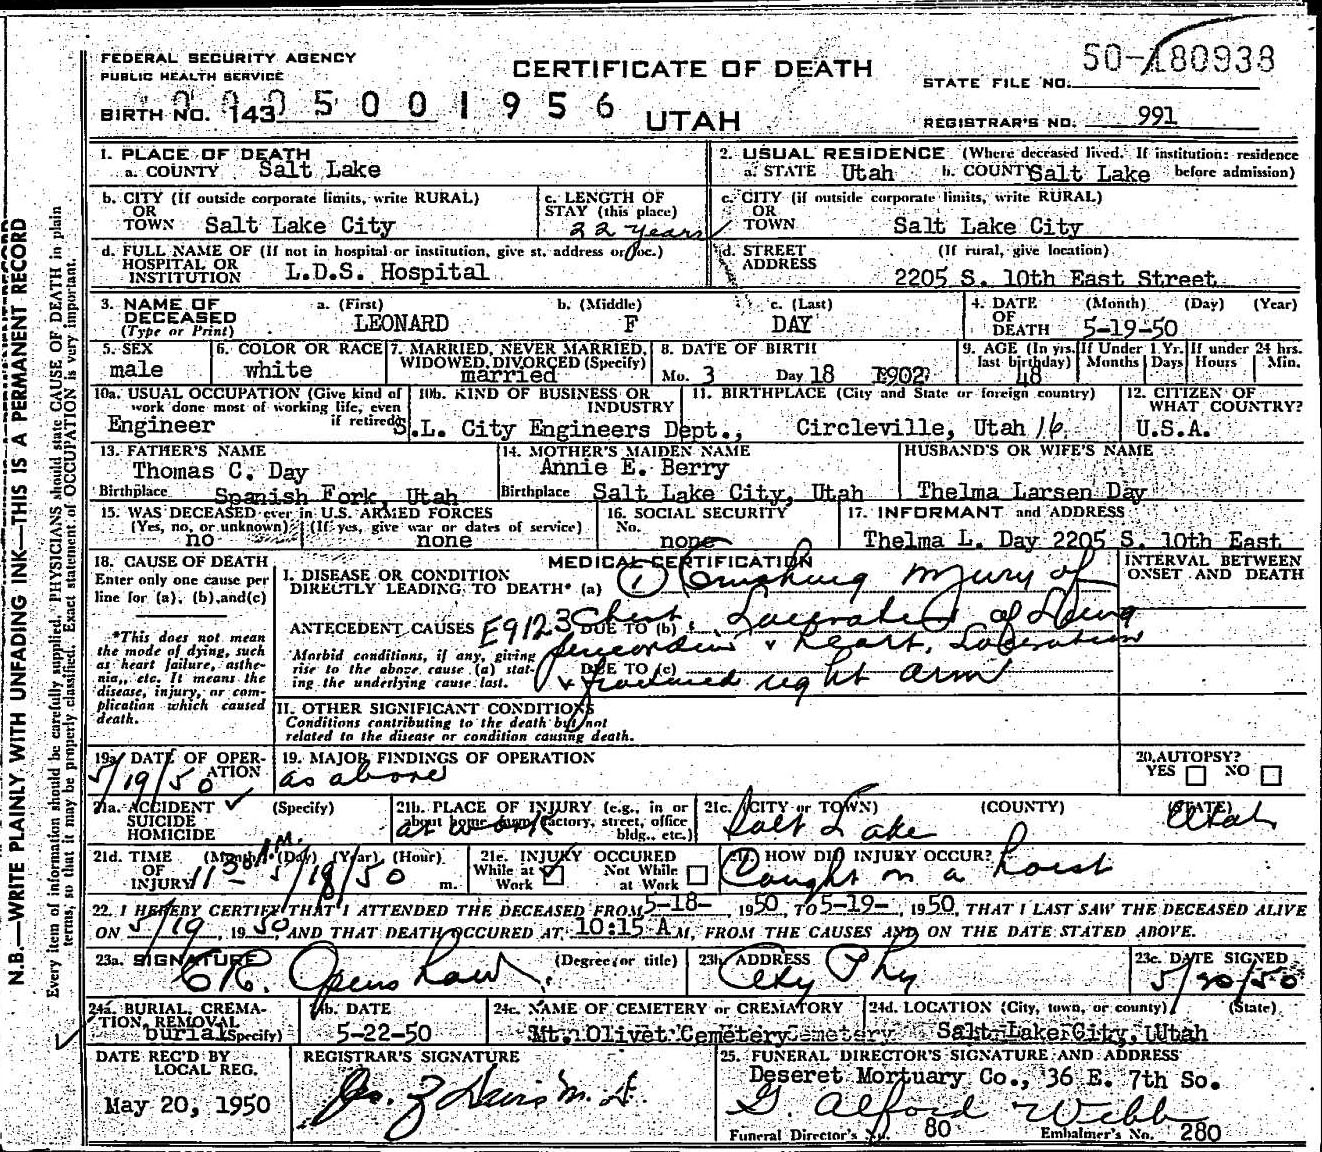 FEDERAL SECURITY AGENCY
PUBLIC HEALTH SERVICE
CERTIFICATE OF DEATH
STATE FILE NO. 50-180938
BIRTH NO. 143 0005001956
UTAH
REGISTRAR'S NO. 991
1. PLACE OF DEATH
a. COUNTY Salt Lake
2. USUAL RESIDENCE (Where deceased lived. If institution: residence
a. STATE Utah b. COUNTY Salt Lake before admission)
b. CITY (If outside corporate limits, write RURAL)
OR
TOWN Salt Lake City
c. LENGTH OF
STAY (this place)
22 years
c. CITY (if outside corporate limits, write RURAL)
OR
TOWN Salt Lake City
d. FULL NAME OF (If not in hospital or institution, give st. address or loc.)
HOSPITAL OR
INSTITUTION L.D.S. Hospital
d. STREET (If rural, give location)
ADDRESS
2205 S. 10th East Street
3. NAME OF a. (First) b. (Middle) c. (Last)
DECEASED
(Type or Print) LEONARD F DAY
4. DATE (Month) (Day) (Year)
OF
DEATH 5-19-50
5. SEX
male
6. COLOR OR RACE
white
7. MARRIED, NEVER MARRIED,
WIDOWED, DIVORCED (Specify)
married
8. DATE OF BIRTH
Mo. 3 Day 18 1902
9. AGE (In yrs. last birthday) 48
If Under 1 Yr. Months Days
If under 24 hrs. Hours Min.
10a. USUAL OCCUPATION (Give kind of
work done most of working life, even
if retired)
Engineer
10b. KIND OF BUSINESS OR
INDUSTRY
S.L. City Engineers Dept.,
11. BIRTHPLACE (City and State or foreign country)
Circleville, Utah 16
12. CITIZEN OF
WHAT COUNTRY?
U.S.A.
13. FATHER'S NAME
Thomas C. Day
Birthplace Spanish Fork, Utah
14. MOTHER'S MAIDEN NAME
Annie E. Berry
Birthplace Salt Lake City, Utah
HUSBAND'S OR WIFE'S NAME
Thelma Larsen Day
15. WAS DECEASED ever in U.S. ARMED FORCES
(Yes, no, or unknown) (If yes, give war or dates of service)
no none
16. SOCIAL SECURITY
No.
none
17. INFORMANT and ADDRESS
Thelma L. Day 2205 S. 10th East
18. CAUSE OF DEATH
Enter only one cause per
line for (a), (b), and (c)
*This does not mean
the mode of dying, such
as heart failure, asthe-
nia, etc. It means the
disease, injury, or com-
plication which caused
death.
MEDICAL CERTIFICATION
INTERVAL BETWEEN
ONSET AND DEATH
I. DISEASE OR CONDITION
DIRECTLY LEADING TO DEATH* (a) 1 Crushing injury of
Chest
ANTECEDENT CAUSES E9123 DUE TO (b) Laceration of Lung
Morbid conditions, if any, giving
rise to the above cause (a) stat-
ing the underlying cause last.
pericardium & heart. Laceration
DUE TO (c)
& fractured right arm
II. OTHER SIGNIFICANT CONDITIONS
Conditions contributing to the death but not
related to the disease or condition causing death.
19a. DATE OF OPER-
ATION
5/19/50
19. MAJOR FINDINGS OF OPERATION
as above
20. AUTOPSY?
YES NO
21a. ACCIDENT ✓ (Specify)
SUICIDE
HOMICIDE
21b. PLACE OF INJURY (e.g., in or
about home, farm, factory, street, office
bldg., etc.)
at work
21c. (CITY or TOWN) (COUNTY) (STATE)
Salt Lake Utah
21d. TIME (Month) (Day) (Year) (Hour)
OF
INJURY 11 30 AM. 5/18/50 m.
21e. INJURY OCCURED
While at Work ✓ Not While at Work
HOW DID INJURY OCCUR?
Caught in a hoist
22. I HEREBY CERTIFY THAT I ATTENDED THE DECEASED FROM 5-18-, 1950, TO 5-19-, 1950, THAT I LAST SAW THE DECEASED ALIVE
ON 5/19, 1950, AND THAT DEATH OCCURED AT 10:15 A M, FROM THE CAUSES AND ON THE DATE STATED ABOVE.
23a. SIGNATURE (Degree or title)
CR. Openshaw
23b. ADDRESS
City Phy
23c. DATE SIGNED
5/20/50
24a. BURIAL, CREMA-
TION, REMOVAL
burial (Specify)
24b. DATE
5-22-50
24c. NAME OF CEMETERY or CREMATORY
Mt. Olivet Cemetery
24d. LOCATION (City, town, or county) (State)
Salt Lake City, Utah
DATE REC'D BY
LOCAL REG.
May 20, 1950
REGISTRAR'S SIGNATURE
25. FUNERAL DIRECTOR'S SIGNATURE AND ADDRESS
Deseret Mortuary Co., 36 E. 7th So.
G. Alford Webb
Funeral Director's No. 80 Embalmer's No. 280
N.B.—WRITE PLAINLY WITH UNFADING INK—THIS IS A PERMANENT RECORD
Every item of information should be carefully supplied. PHYSICIANS should state CAUSE OF DEATH in plain
terms, so that it may be properly classified. Exact statement of OCCUPATION is very important.